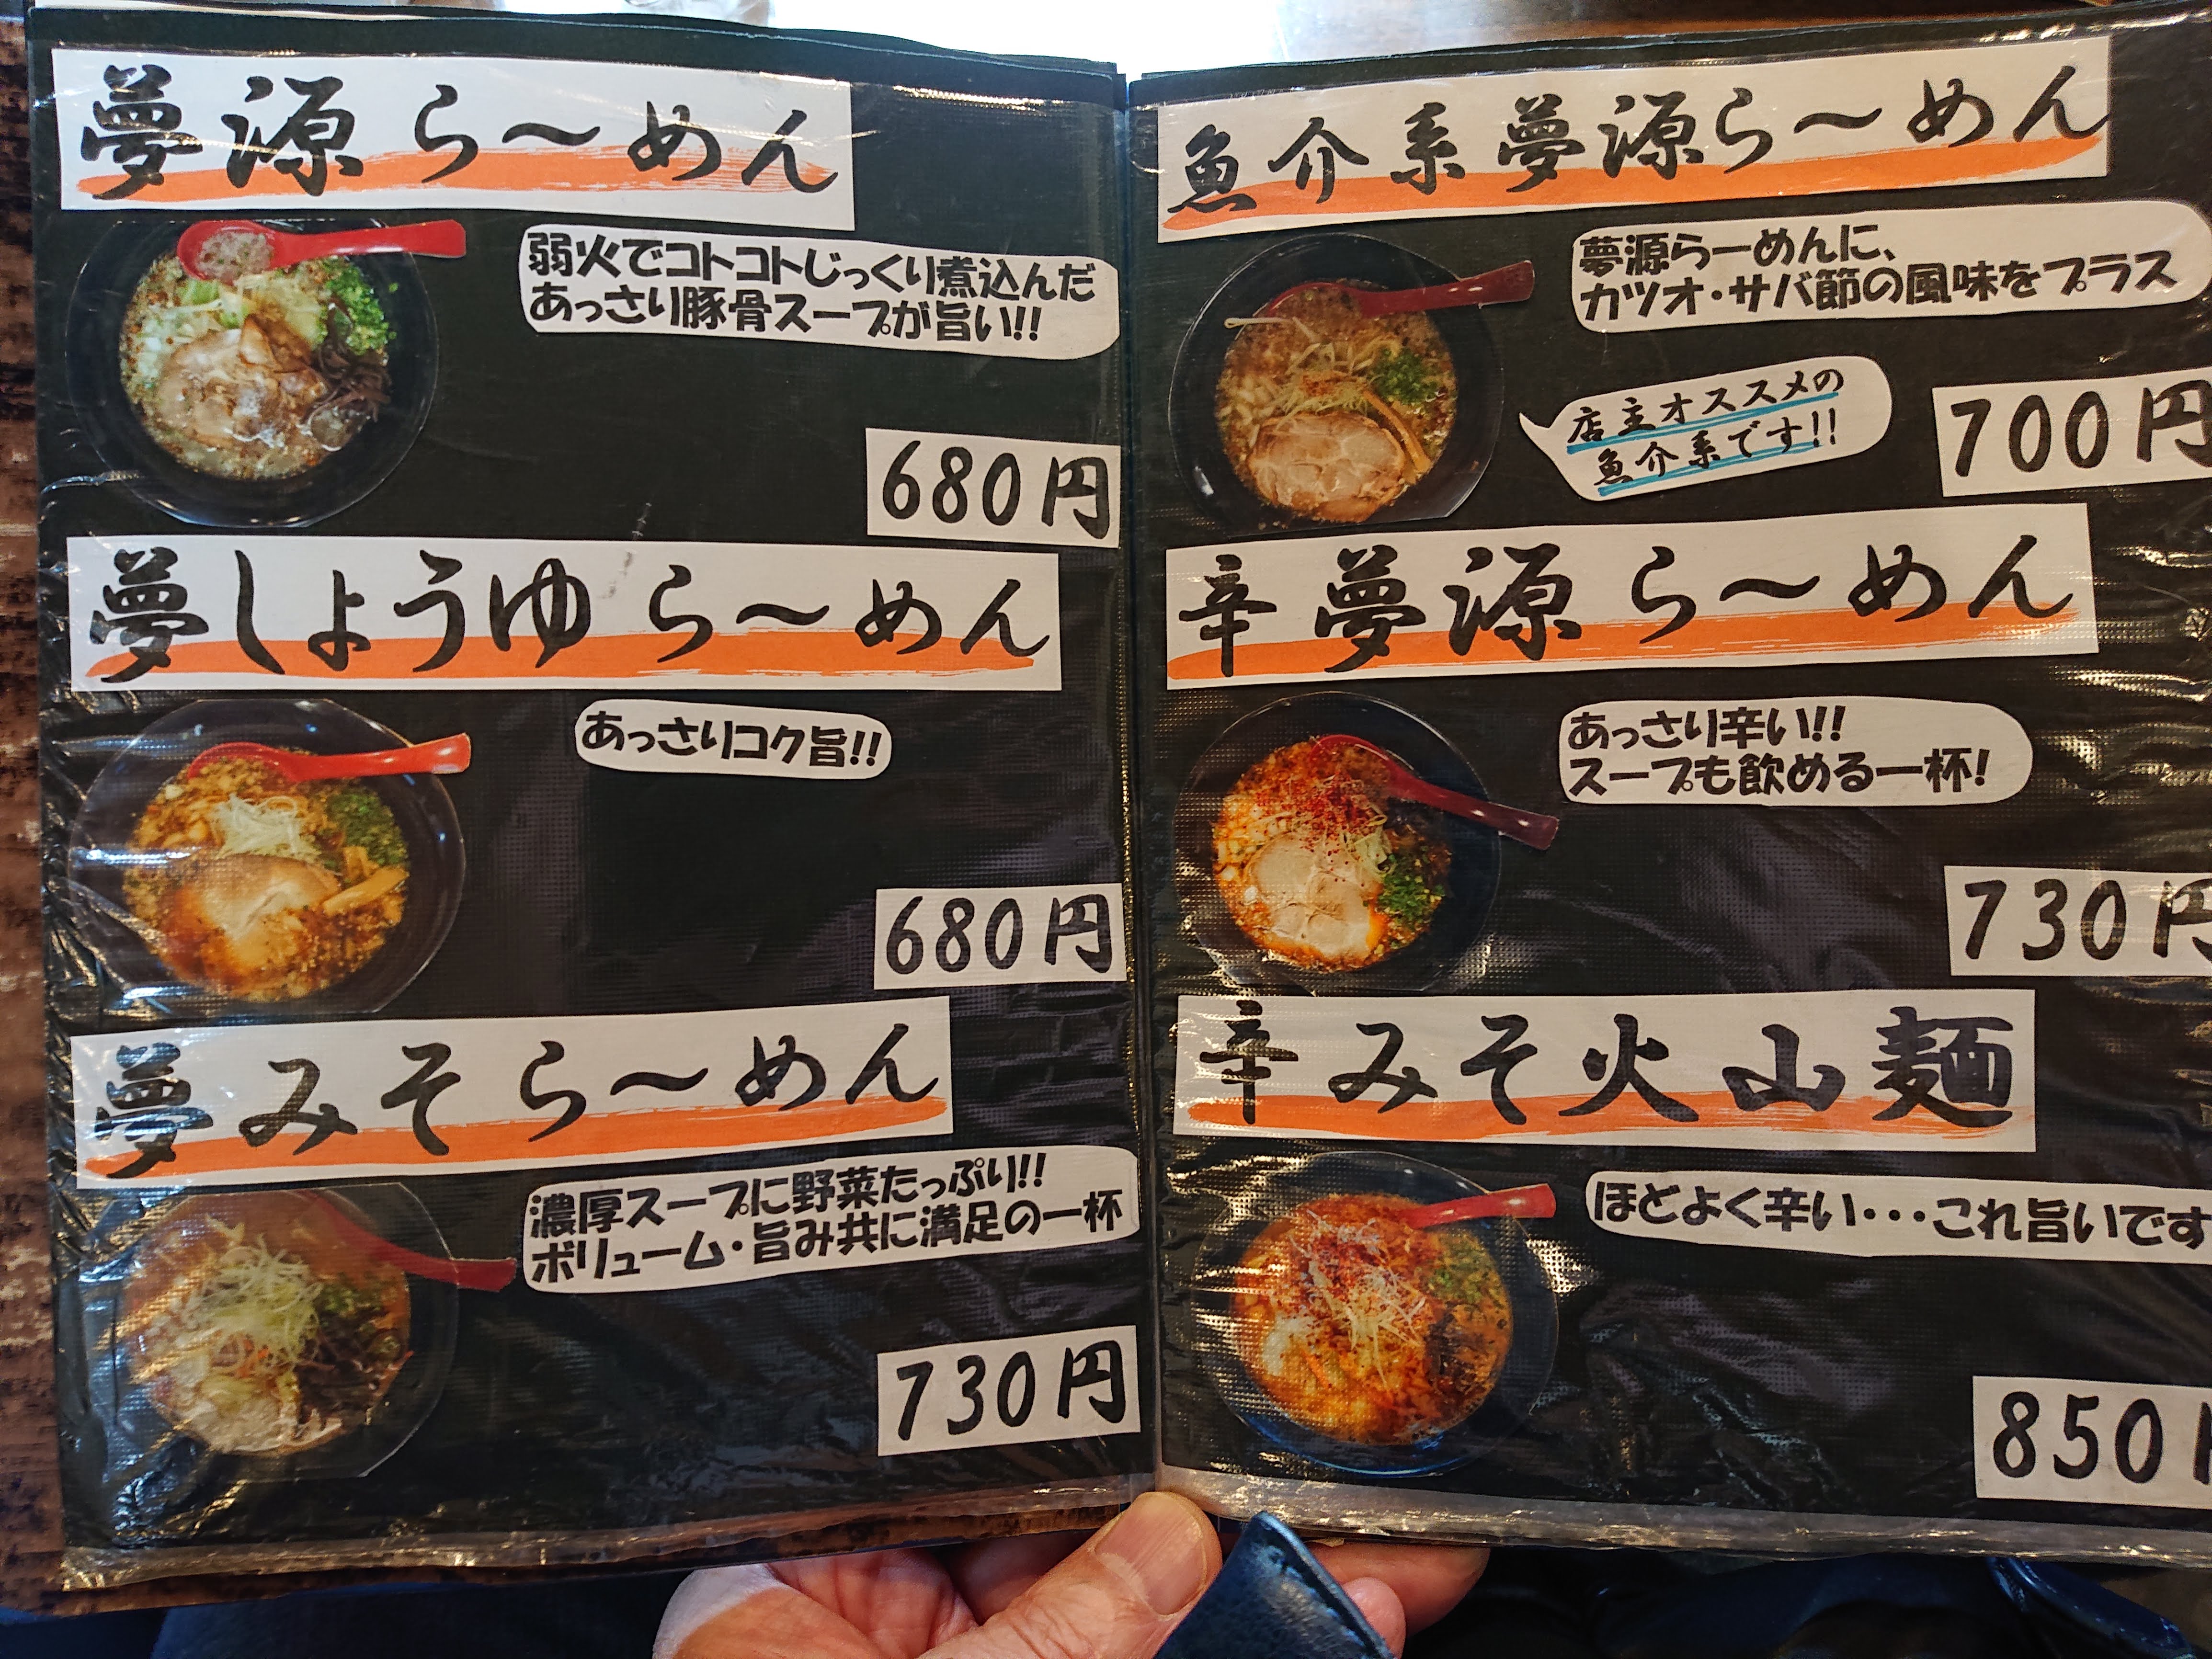 夢源ら〜めん
弱火でコトコトじっくり煮込んだ
あっさり豚骨スープが旨い!!
680円
夢しょうゆら〜めん
あっさりコク旨!!
680円
夢みそら〜めん
濃厚スープに野菜たっぷり!!
ボリューム・旨み共に満足の一杯
730円
魚介系夢源ら〜めん
夢源らーめんに、
カツオ・サバ節の風味をプラス
店主オススメの
魚介系です!!
700円
辛夢源ら〜めん
あっさり辛い!!
スープも飲める一杯!
730円
辛みそ火山麺
ほどよく辛い・・・これ旨いです
850